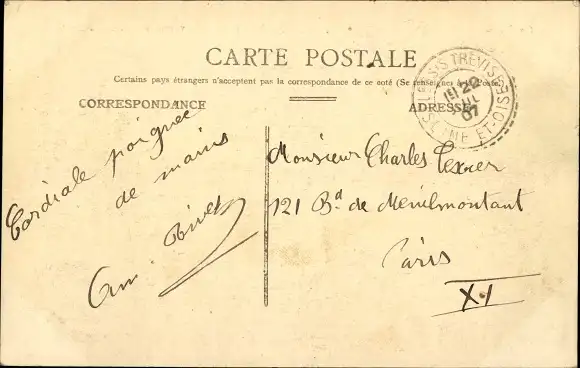 CARTE POSTALE
Certains pays étrangers n'acceptent pas la correspondance de ce coté (Se renseigner à la Poste)
CORRESPONDANCE
ADRESSE
PLESSIS TREVISE
22
JUIL
07
SEINE ET-OISE
Cordiale poignée
de mains
Am. Rivet
Monsieur Charles Texier
121 Bd. de Ménilmontant
Paris
XI